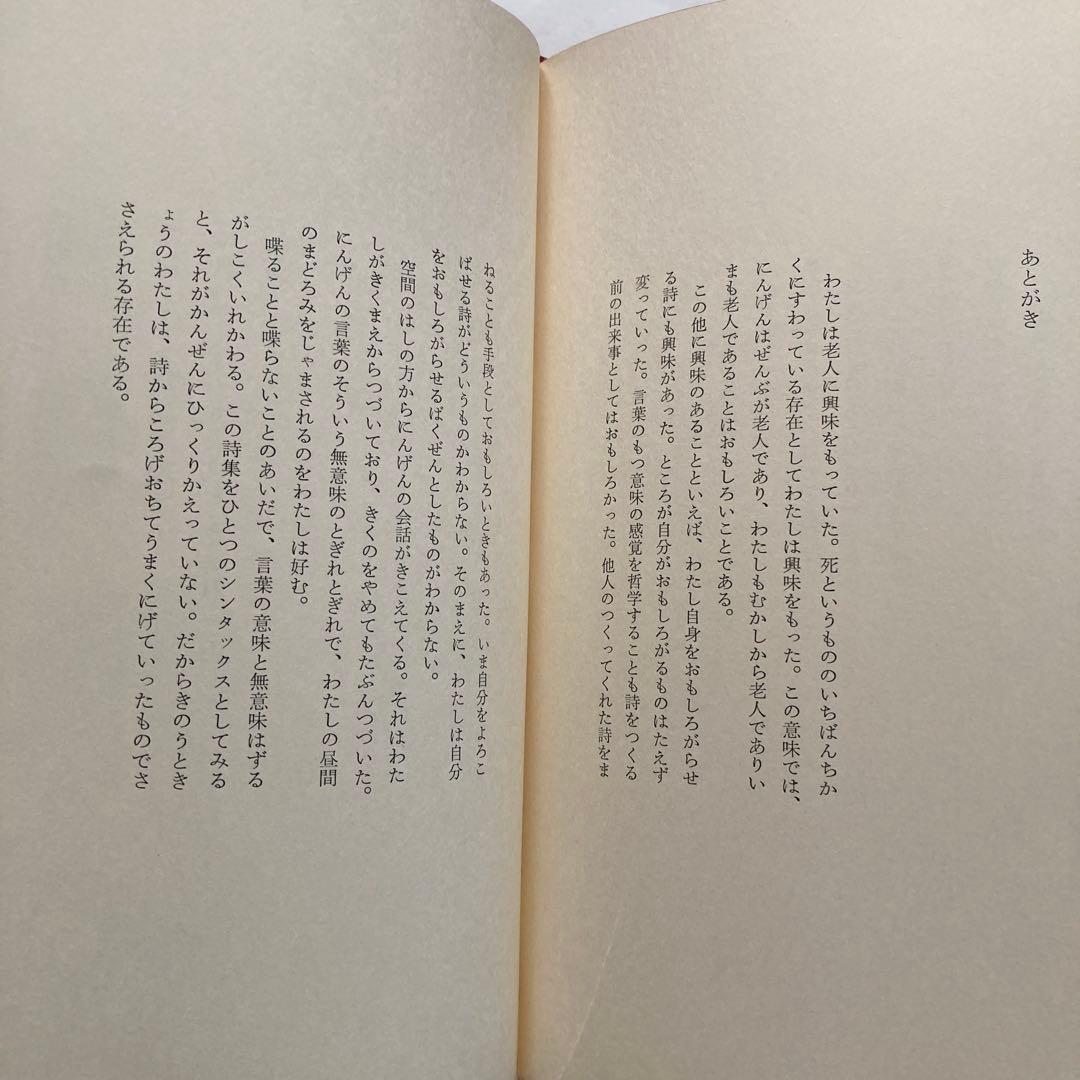 あとがき
わたしは老人に興味をもっていた。死というもののいちばんちか
くにすわっている存在としてわたしは興味をもった。この意味では、
にんげんはぜんぶが老人であり、わたしもむかしから老人でありい
まも老人であることはおもしろいことである。
この他に興味のあることといえば、わたし自身をおもしろがらせ
る詩にも興味があった。ところが自分がおもしろがるものはたえず
変っていった。言葉のもつ意味の感覚を哲学することも詩をつくる
前の出来事としてはおもしろかった。他人のつくってくれた詩をま
ねることも手段としておもしろいときもあった。いま自分をよろこ
ばせる詩がどういうものかわからない。そのまえに、わたしは自分
をおもしろがらせるばくぜんとしたものがわからない。
空間のはしの方からにんげんの会話がきこえてくる。それはわた
しがきくまえからつづいており、きくのをやめてもたぶんつづいた。
にんげんの言葉のそういう無意味のとぎれとぎれで、わたしの昼間
のまどろみをじゃまされるのをわたしは好む。
喋ることと喋らないことのあいだで、言葉の意味と無意味はずる
がしこくいれかわる。この詩集をひとつのシンタックスとしてみる
と、それがかんぜんにひっくりかえっていない。だからきのうとき
ょうのわたしは、詩からころげおちてうまくにげていったものでさ
さえられる存在である。